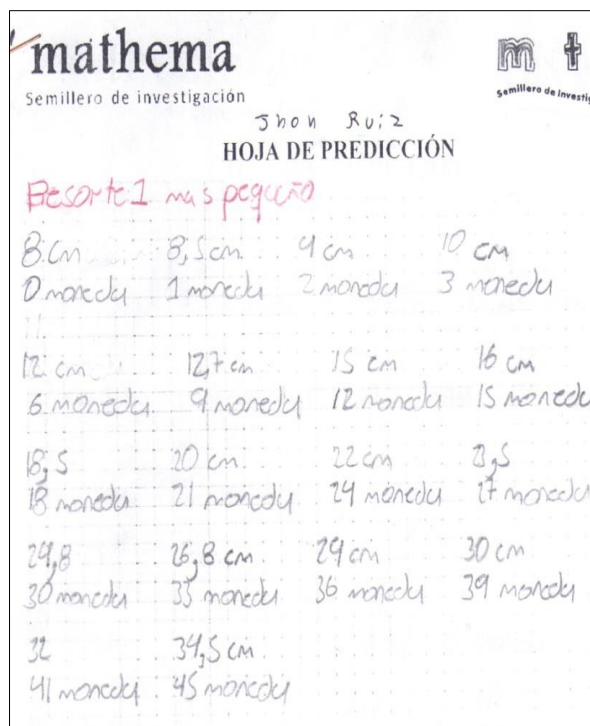 mathema
Semillero de investigación
Semillero de investig
Jhon Ruiz
HOJA DE PREDICCIÓN
Resorte 1 mas pequeño
8 cm 8,5 cm 9 cm 10 cm
0 moneda 1 moneda 2 moneda 3 moneda
12 cm 12,7 cm 15 cm 16 cm
6 moneda 9 moneda 12 moneda 15 moneda
18,5 20 cm 22 cm 23,5
18 moneda 21 moneda 24 moneda 27 moneda
24,8 26,8 cm 29 cm 30 cm
30 moneda 33 moneda 36 moneda 39 moneda
32 34,5 cm
41 moneda 45 moneda